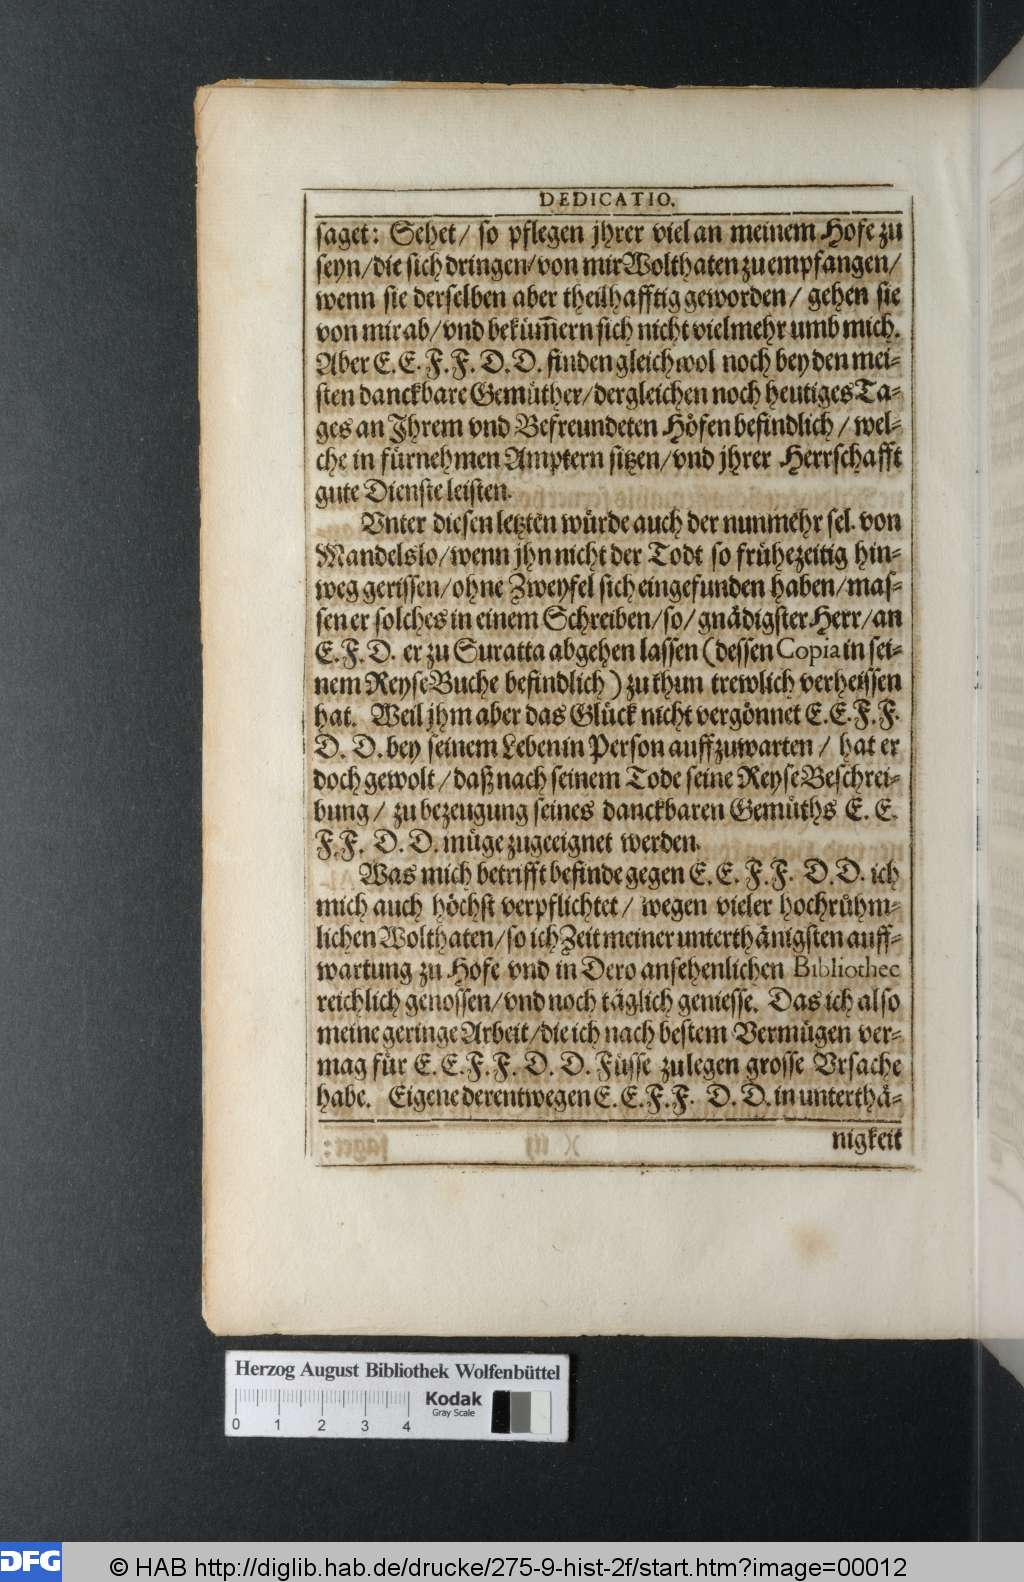 DEDICATIO.
saget: Sehet/ so pflegen jhrer viel an meinem Hofe zu
seyn/die sich dringen/von mir Wolthaten zu empfangen/
wenn sie derselben aber theilhafftig geworden/ gehen sie
von mir ab/vnd beküm̃ern sich nicht vielmehr umb mich.
Aber E. E. F. F. D. D. finden gleichwol noch bey den mei-
sten danckbare Gemüther/dergleichen noch heutiges Ta-
ges an Ihrem vnd Befreundeten Höfen befindlich/ wel-
che in fürnehmen Amptern sitzen/vnd jhrer Herrschafft
gute Dienste leisten.
Vnter diesen letzten würde auch der nunmehr sel. von
Mandelslo/wenn jhn nicht der Todt so frühezeitig hin-
weg gerissen/ohne Zweyfel sich eingefunden haben/mas-
sen er solches in einem Schreiben/so/gnädigster Herr/an
E. F. D. er zu Suratta abgehen lassen (dessen Copia in sei-
nem ReyseBuche befindlich) zu thun trewlich verheissen
hat. Weil jhm aber das Glück nicht vergönnet E. E. F. F.
D. D. bey seinem Leben in Person auffzuwarten/ hat er
doch gewolt/daß nach seinem Tode seine ReyseBeschrei-
bung/ zu bezeugung seines danckbaren Gemüths E. E.
F. F. D. D. müge zugeeignet werden.
Was mich betrifft befinde gegen E. E. F. F. D. D. ich
mich auch höchst verpflichtet/ wegen vieler hochrühm-
lichen Wolthaten/so ich Zeit meiner unterthänigsten auff-
wartung zu Hofe vnd in Dero ansehenlichen Bibliothec
reichlich genossen/vnd noch täglich geniesse. Das ich also
meine geringe Arbeit/die ich nach bestem Vermügen ver-
mag für E. E. F. F. D. D. Füsse zulegen grosse Vrsache
habe. Eigene derentwegen E. E. F. F. D. D. in unterthä-
nigkeit
Herzog August Bibliothek Wolfenbüttel
Kodak
Gray Scale
0 1 2 3 4
DFG
© HAB http://diglib.hab.de/drucke/275-9-hist-2f/start.htm?image=00012